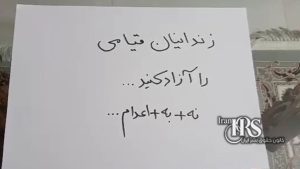 زندانیان قیامی
را آزاد کنید...
نه + به + اعدام...
Iran HRS
کانون حقوق بشر ایران